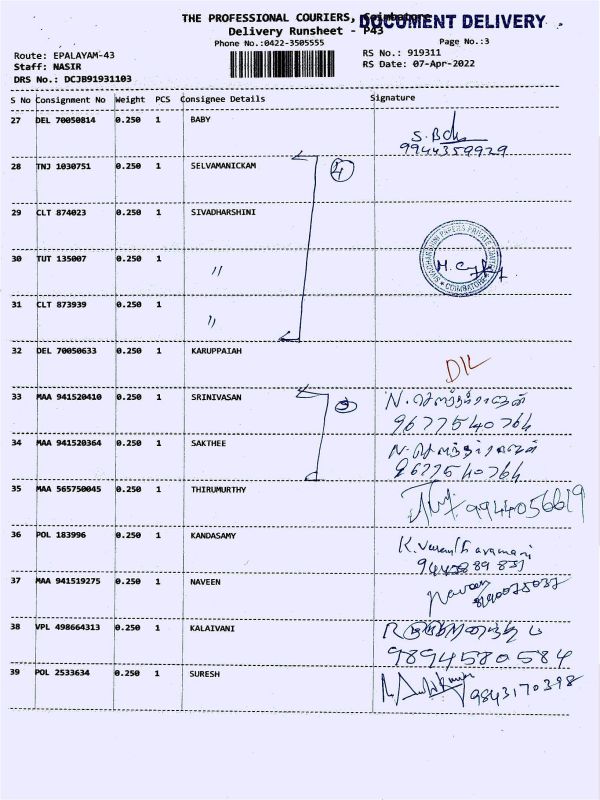 THE PROFESSIONAL COURIERS, Coimbatore
DOCUMENT DELIVERY
Delivery Runsheet - P43
Phone No.:0422-3505555
Page No.:3
Route: EPALAYAM-43
RS No.: 919311
Staff: NASIR
RS Date: 07-Apr-2022
DRS No.: DCJB91931103
S No Consignment No Weight PCS Consignee Details Signature
27 DEL 70050814 0.250 1 BABY
9944359929
28 TNJ 1030751 0.250 1 SELVAMANICKAM
4
29 CLT 874023 0.250 1 SIVADHARSHINI
SIVADHARSHINI PAPERS PRIVATE LIMITED
COIMBATORE
30 TUT 135007 0.250 1 "
31 CLT 873939 0.250 1 "
32 DEL 70050633 0.250 1 KARUPPAIAH
33 MAA 941520410 0.250 1 SRINIVASAN
9677540764
34 MAA 941520364 0.250 1 SAKTHEE
9677540764
35 MAA 565750045 0.250 1 THIRUMURTHY
9944056619
36 POL 183996 0.250 1 KANDASAMY
37 MAA 941519275 0.250 1 NAVEEN
Naveen
38 VPL 498664313 0.250 1 KALAIVANI
9894580584
39 POL 2533634 0.250 1 SURESH
9843170398